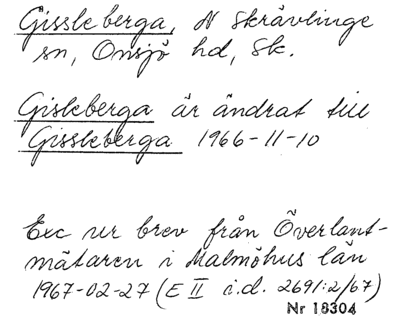 Gissleberga, N Skrävlinge
sn, Onsjö hd, Sk.
Gisleberga är ändrat till
Gissleberga 1966-11-10
Exc ur brev från Överlant-
mätaren i Malmöhus län
1967-02-27 (E II i.d. 2691:2/67)
Nr 18304